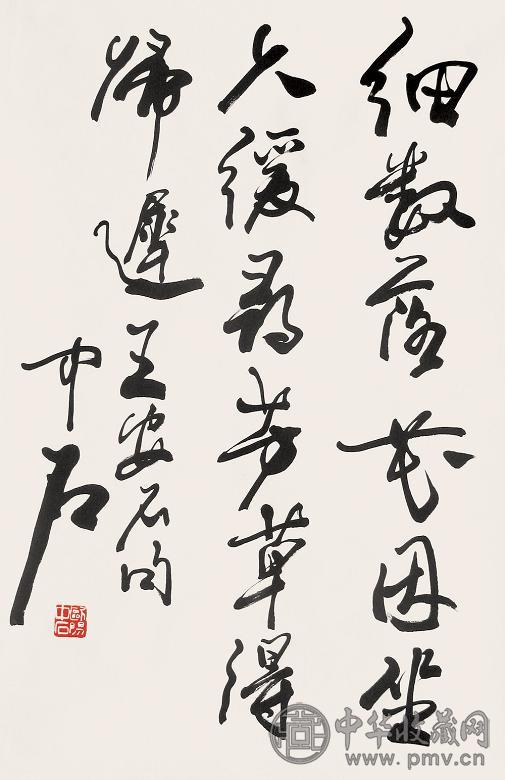 細數落花因坐
久緩尋芳草得
歸遲 王安石句
中石
歐陽中石
中华收藏网
www.pmv.cn